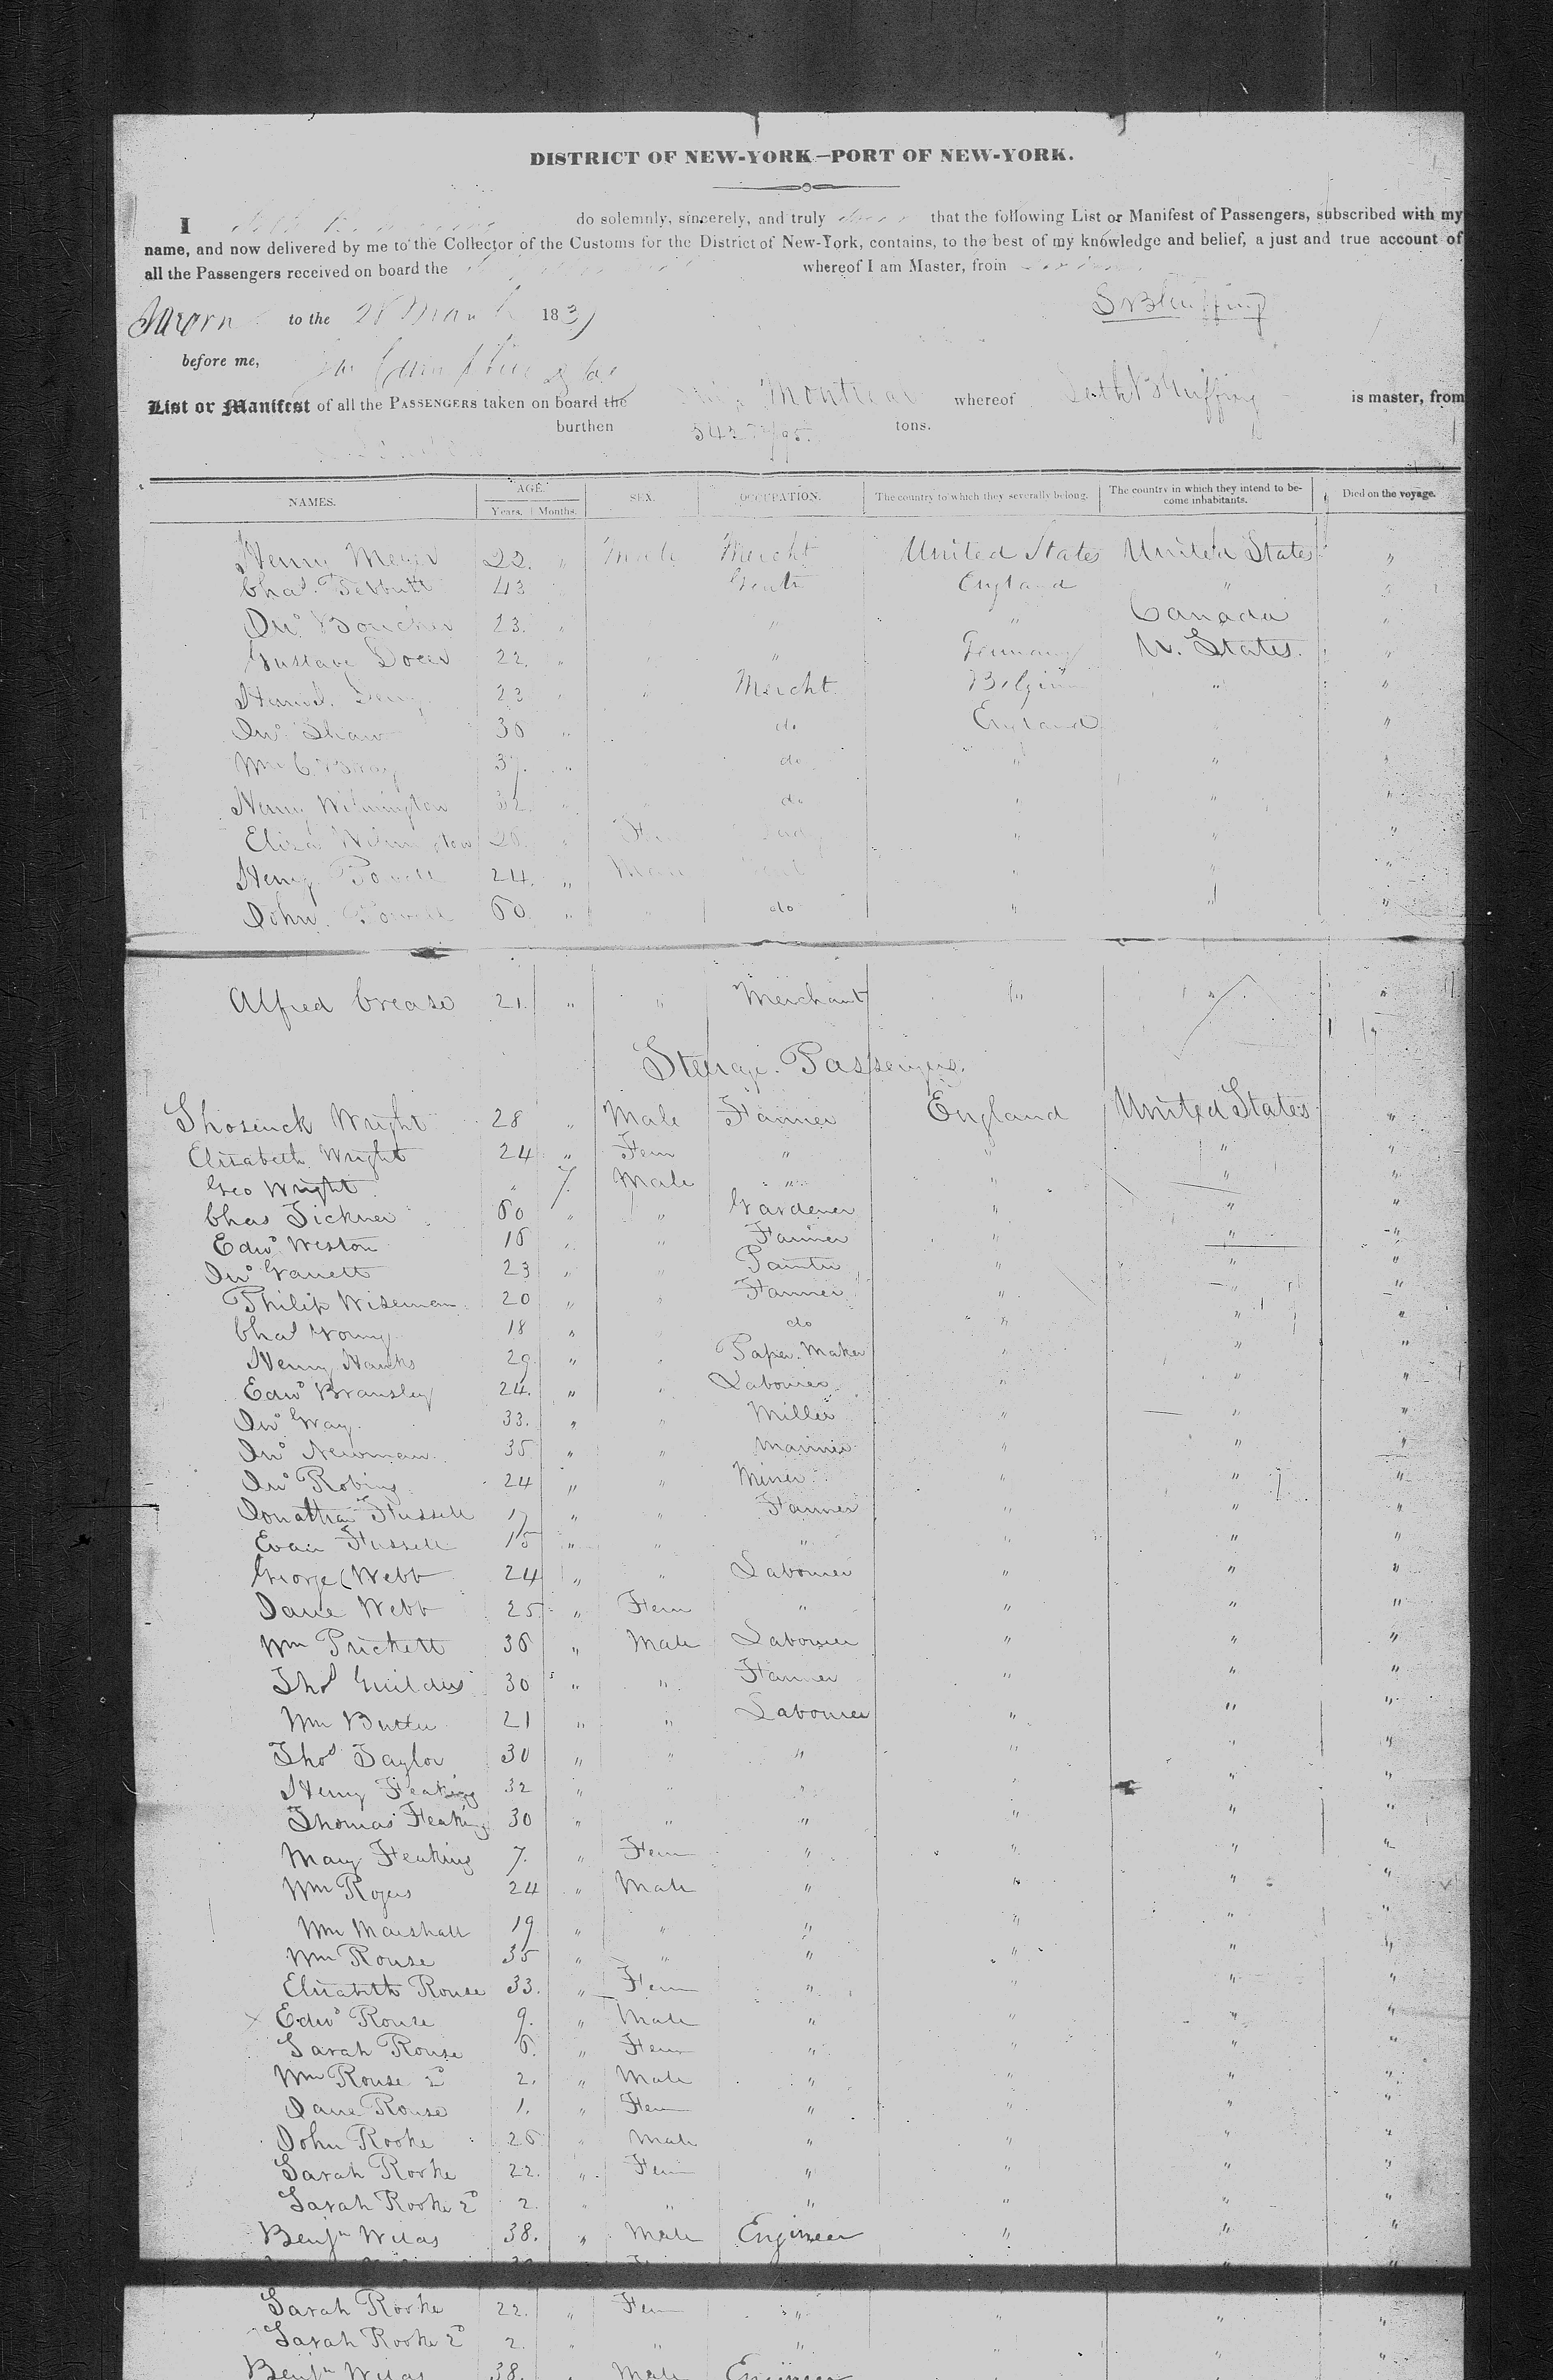 DISTRICT OF NEW-YORK—PORT OF NEW-YORK.
I do solemnly, sincerely, and truly that the following List or Manifest of Passengers, subscribed with my
name, and now delivered by me to the Collector of the Customs for the District of New-York, contains, to the best of my knowledge and belief, a just and true account of
all the Passengers received on board the whereof I am Master, from
Sworn to the 28 March 183
before me,
List or Manifest of all the PASSENGERS taken on board the Ship Montreal whereof is master, from
burthen 542 tons.
NAMES. AGE. SEX. OCCUPATION. The country to which they severally belong. The country in which they intend to be-
come inhabitants. Died on the voyage.
Years. Months.
Henry Meyer 22. " Male Mercht United States United States "
Chas. Tebbutt 43 England "
Jno. Boucher 23. " " " Canada "
Gustave 22. " " Germany U. States. "
23 " " Mercht. Belgium " "
Jno. Shaw 30 " do England "
Wm C Bray 37. " do " " "
Henry Wilmington 32 " do " " "
Eliza Wilmington 28 " Fem Lady " " "
Henry Powell 24. " Male " " "
John Powell 60 " do " " "
Alfred Crease 21. " " Merchant " " "
Steerage Passengers.
Wright 28 " Male Farmer England United States "
Elizabeth Wright 24 " Fem " " " "
Geo Wright " 7. Male " " " "
Chas Tickner 60 " " Gardener " " "
Edwd Weston 16 " " Farmer " " "
Jno Garrett 23 " " Painter " " "
Philip Wiseman 20 " " Farmer " " "
Chas Young 18 " do " " "
Henry Hawks 29. " " Paper Maker " " "
Edwd Bransley 24. " " Labourer " " "
Jno Gray 33. " " Miller " " "
Jno Newman 35 " " Mariner " " "
Jno Robins 24 " " Miner " " "
Jonathan Fussell 17 " " Farmer " " "
Evan Fussell 15 " " " " " "
George Webb 24 " " Labourer " " "
Jane Webb 25 " Fem " " " "
Wm Prickett 36 " Male Labourer " " "
Thos Guilders 30 " " Farmer " " "
Wm Butler 21 " " Labourer " " "
Thos Taylor 30 " " " " " "
Henry Feaking 32 " " " " " "
Thomas Feaking 30 " " " " " "
Mary Feaking 7. " Fem " " " "
Wm Rogers 24 " Male " " " "
Wm Marshall 19 " " " " " "
Wm Rouse 35 " " " " " "
Elizabeth Rouse 33. " Fem " " " "
Edwd Rouse 9. " Male " " " "
Sarah Rouse 6. " Fem " " " "
Wm Rouse 2d 2. " Male " " " "
Jane Rouse 1. " Fem " " " "
John Rooke 26 " Male " " " "
Sarah Rooke 22. " Fem " " " "
Sarah Rooke 2d 2. " " " " " "
Benjn Wilas 38. " Male Engineer " " "
Sarah Rooke 22. " Fem " " " "
Sarah Rooke 2d 2. " " " " " "
Benjn Wilas 38. " Male Engineer